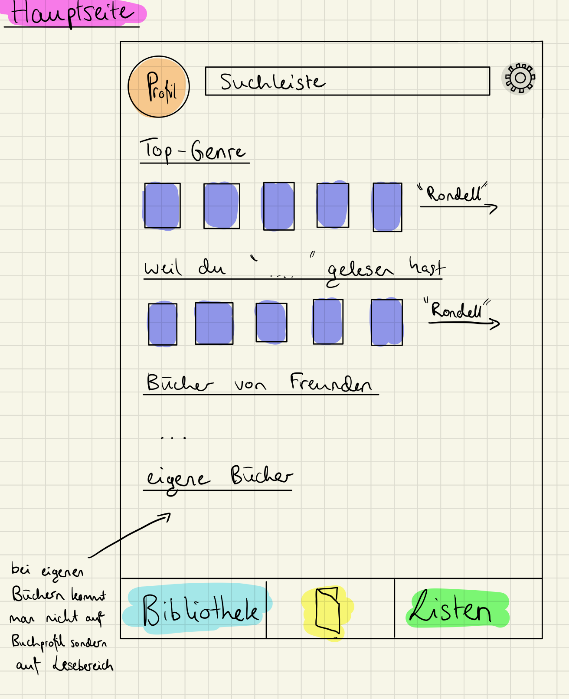 Hauptseite
Profil
Suchleiste
Top-Genre
"Rondell"
weil du "....." gelesen hast
"Rondell"
Bücher von Freunden
...
eigene Bücher
bei eigenen
Büchern kommt
man nicht auf
Buchprofil sondern
auf Lesebereich
Bibliothek
Listen